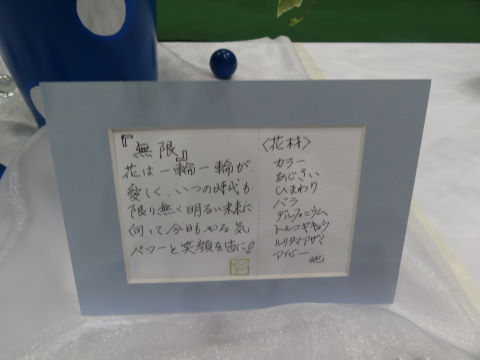 『無限』
花は一輪一輪が、
愛しく、いつの時代も
限り無く明るい未来に
向って今日もやる気
パワーと笑顔を宙に!
〈花材〉
カラー
あじさい
ひまわり
バラ
デルフィニウム
トルコギキョウ
ルリタマアザミ
アイビー
他